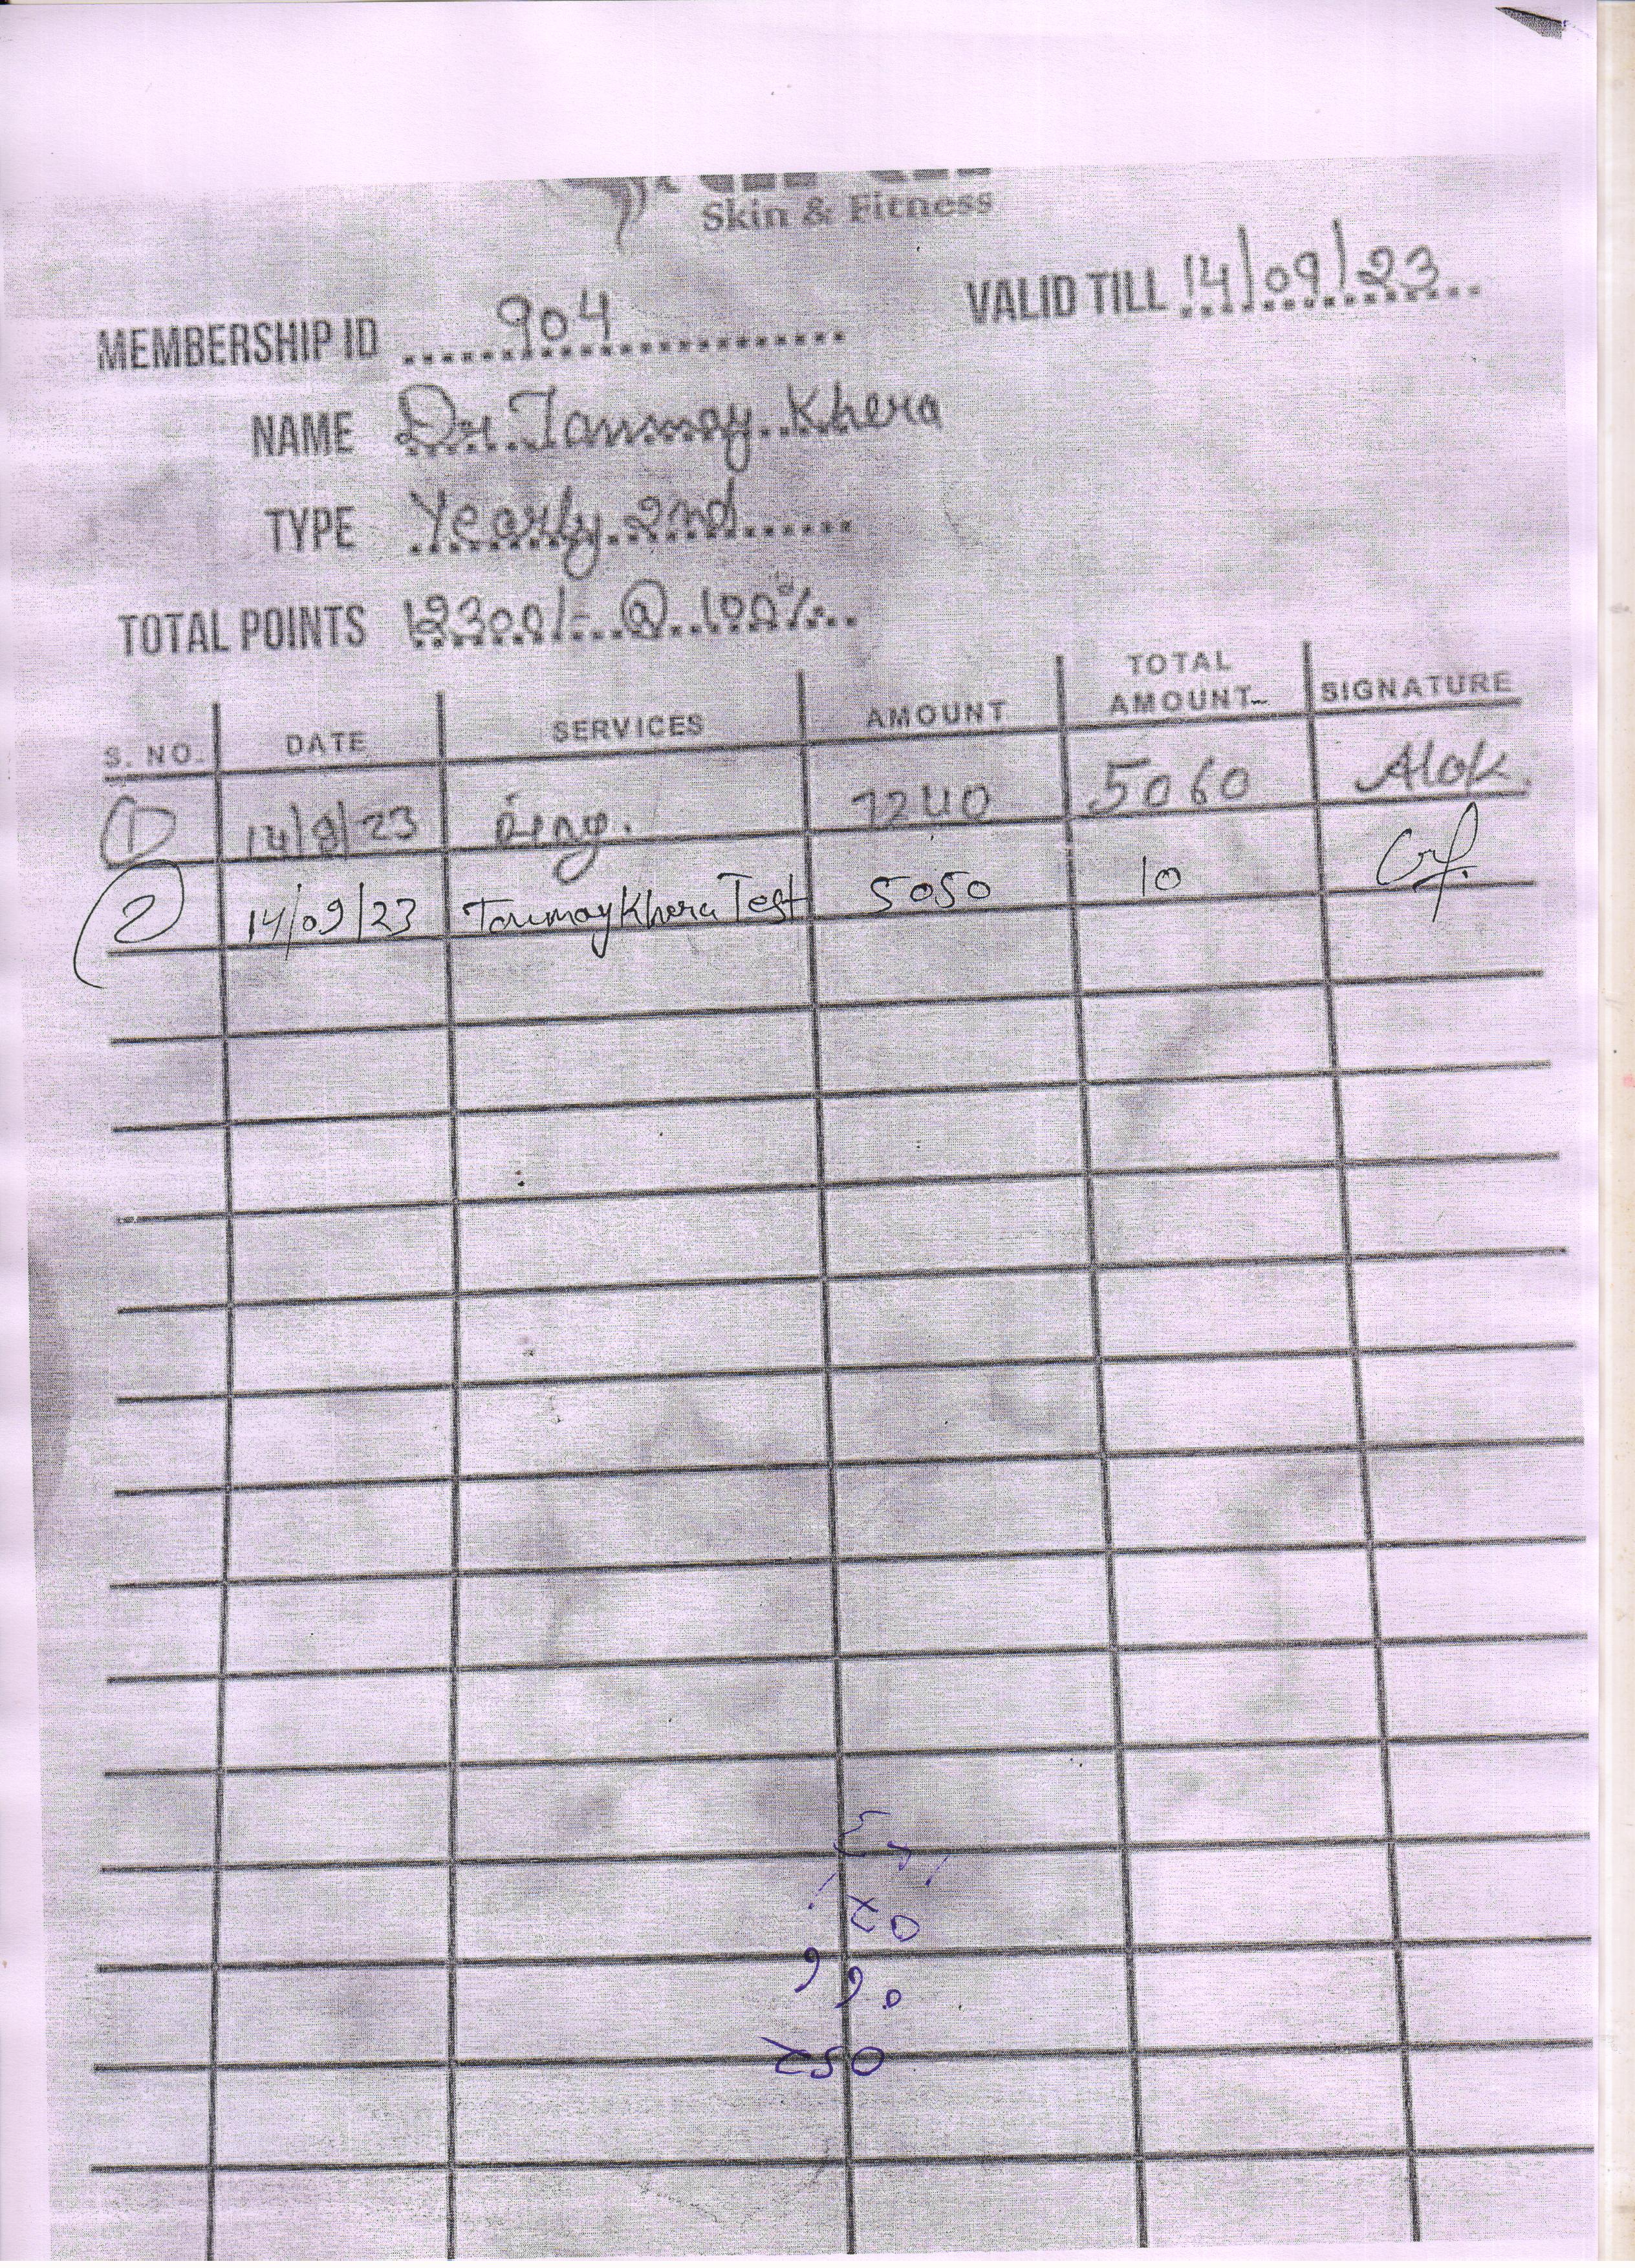 Skin & Fitness
VALID TILL 14/09/23
MEMBERSHIP ID 904
NAME Dr. Tanmay Khera
TYPE Yearly 2nd
TOTAL POINTS 12300/- @ 100%
S. NO. DATE SERVICES AMOUNT TOTAL AMOUNT SIGNATURE
1 14/9/23 7240 5060 Alok
2 14/09/23 Tanmay Khera Test 5050 10